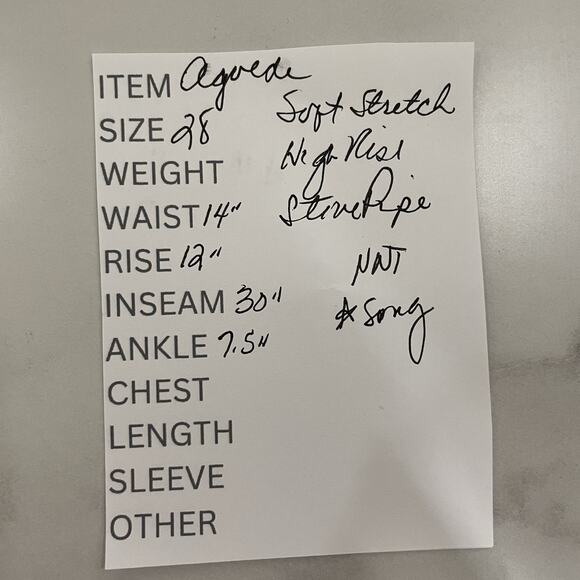 ITEM Agolde
SIZE 28 Soft Stretch
WEIGHT High Rise
WAIST 14" StovePipe
RISE 12" NNT
INSEAM 30" ☆ Song
ANKLE 7.5"
CHEST
LENGTH
SLEEVE
OTHER